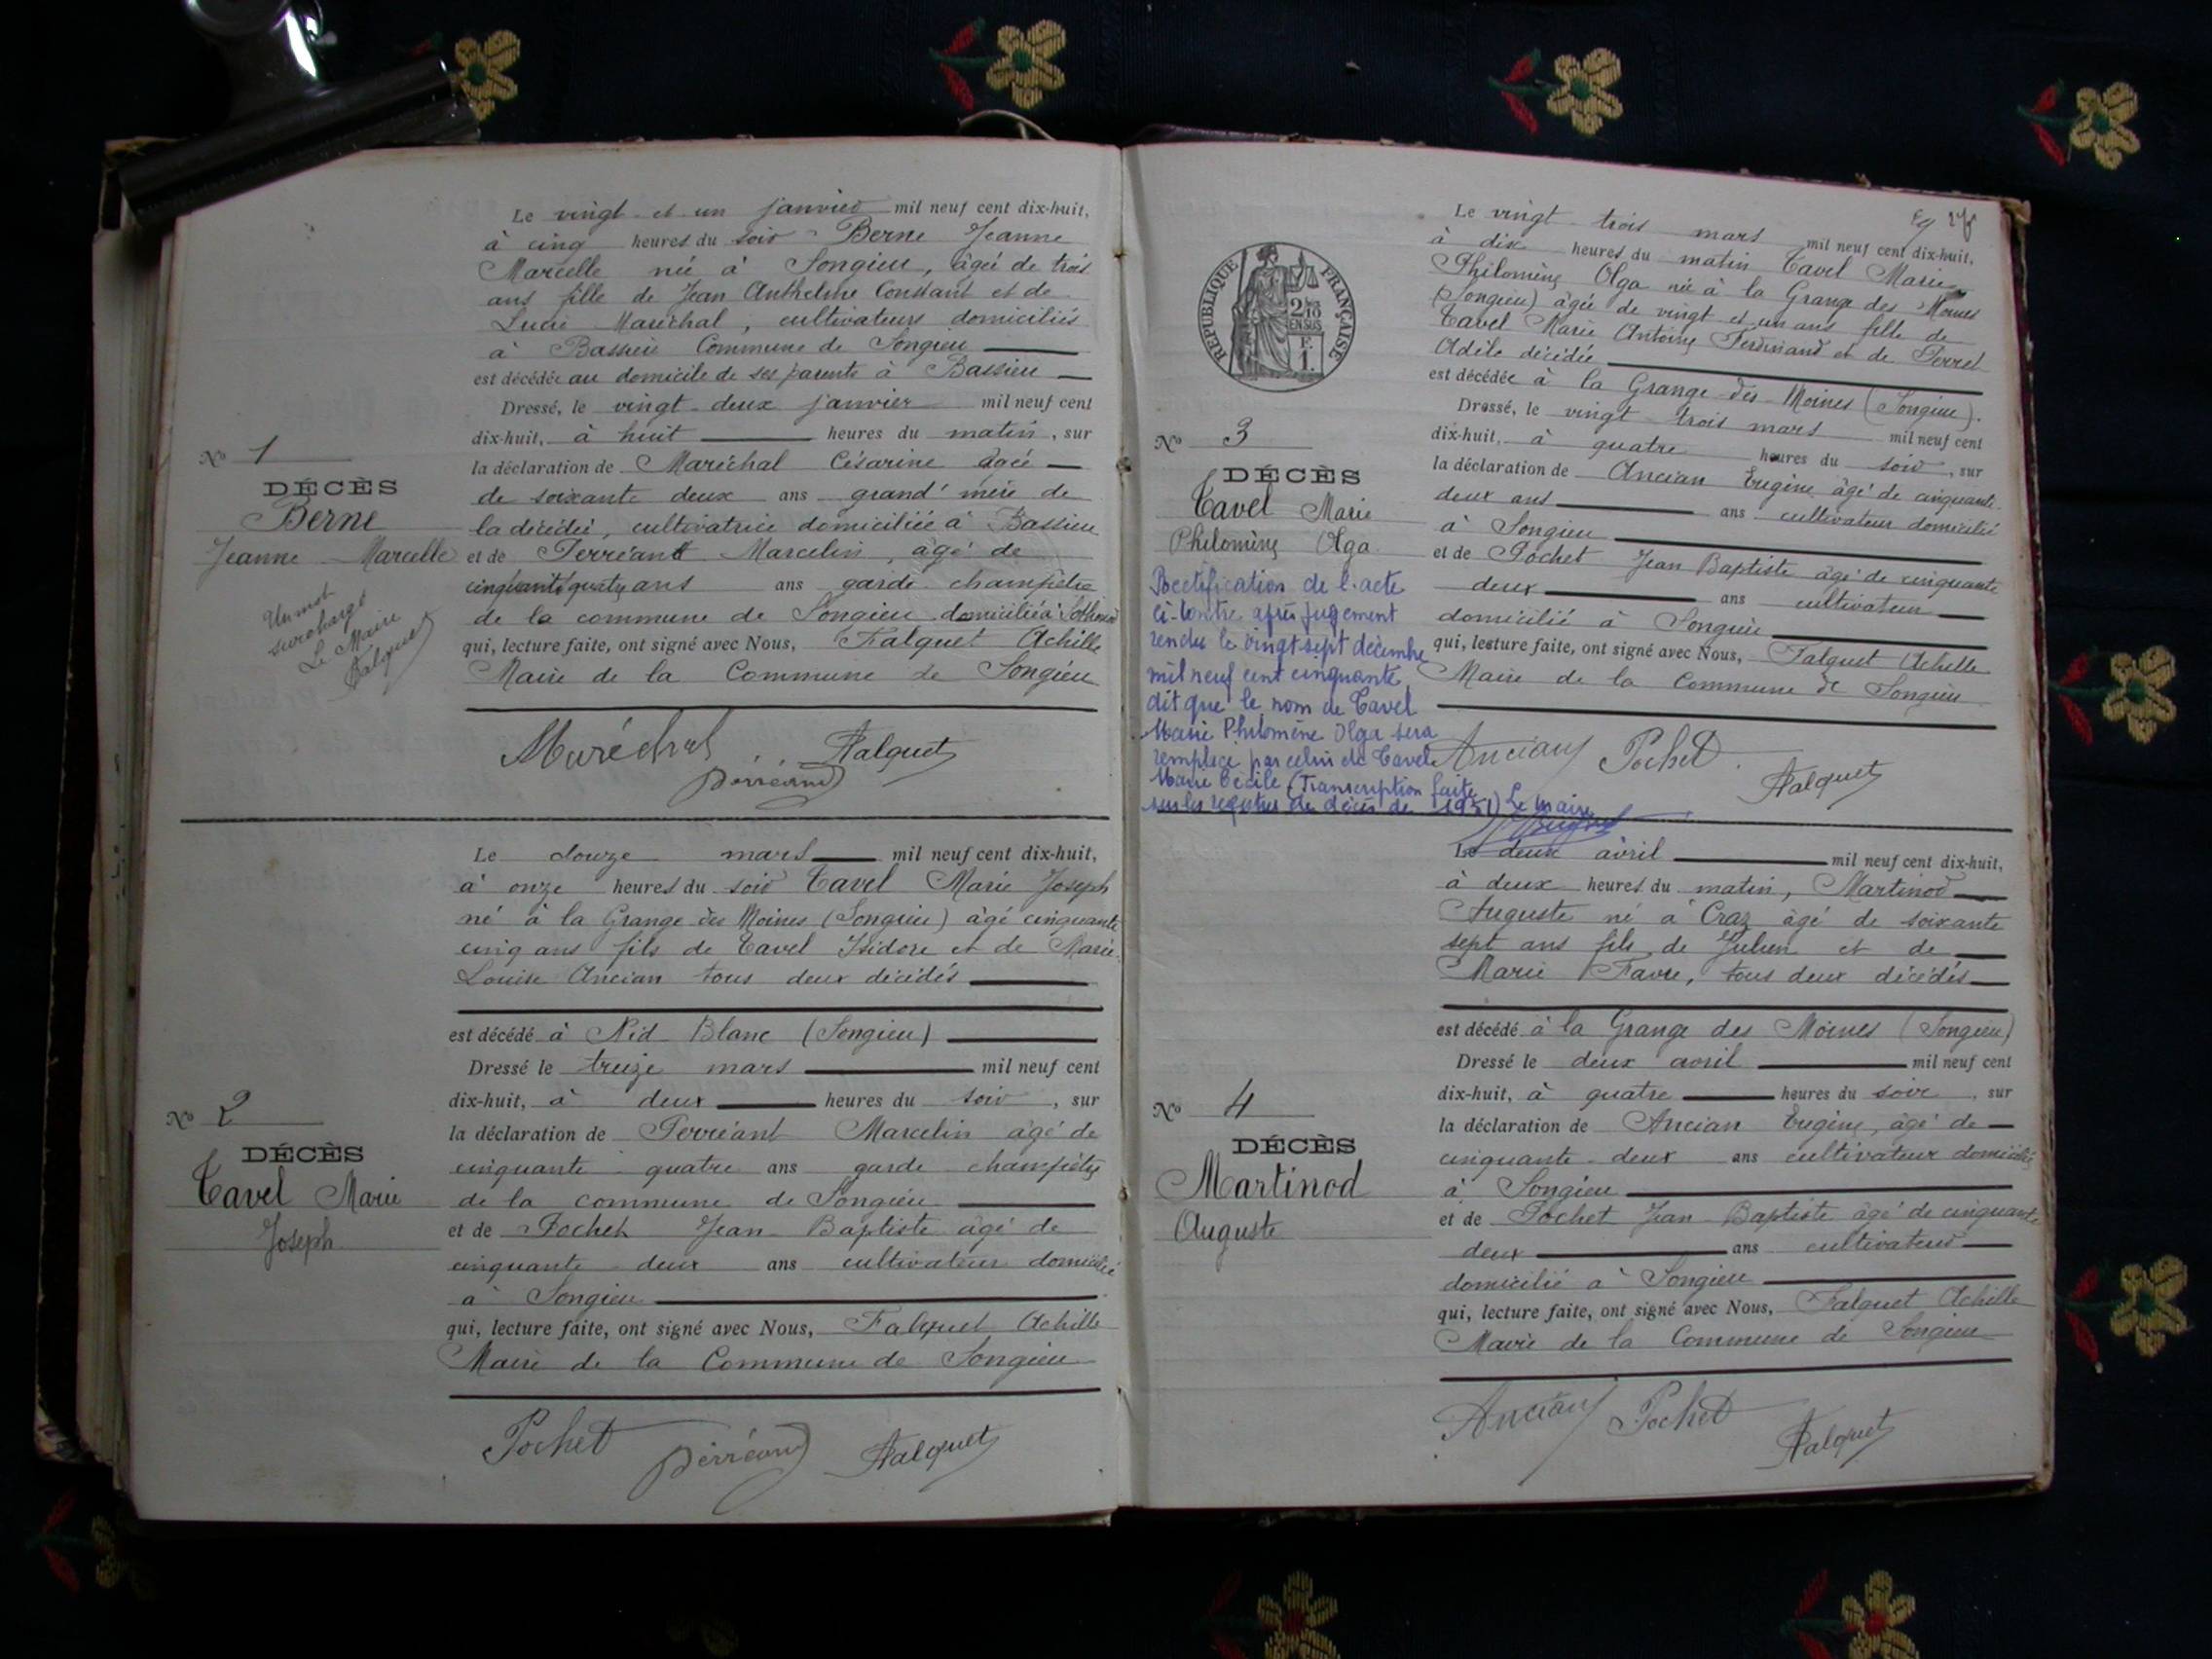 Le vingt et un janvier mil neuf cent dix-huit,
à cinq heures du soir Berne Jeanne
Marcelle née à Songieu, âgée de trois
ans fille de Jean Anthelme Constant et de
Lucie Maréchal, cultivateurs domiciliés
à Bassieu Commune de Songieu
est décédée au domicile de ses parents à Bassieu
Dressé, le vingt-deux janvier mil neuf cent
dix-huit, à huit heures du matin, sur
la déclaration de Maréchal Césarine âgée
de soixante deux ans grand'mère de
la décédée, cultivatrice domiciliée à Bassieu
et de Perréant Marcelin, âgé de
cinquante quatre ans ans garde champêtre
de la commune de Songieu domicilié à
qui, lecture faite, ont signé avec Nous, Falquet Achille
Maire de la Commune de Songieu
Maréchal Falquet
Perréant
No 1
DÉCÈS
Berne
Jeanne Marcelle
Un mot
surchargé
Le Maire
Falquet
Le douze mars mil neuf cent dix-huit,
à onze heures du soir Tavel Marie Joseph
né à la Grange des Moines (Songieu) âgé cinquante
cinq ans fils de Tavel Isidore et de Marie
Louise Ancian tous deux décédés
est décédé à Nid Blanc (Songieu)
Dressé le treize mars mil neuf cent
dix-huit, à deux heures du soir, sur
la déclaration de Perréant Marcelin âgé de
cinquante-quatre ans garde champêtre
de la commune de Songieu
et de Pochet Jean-Baptiste âgé de
cinquante-deux ans cultivateur domicilié
à Songieu
qui, lecture faite, ont signé avec Nous, Falquet Achille
Maire de la Commune de Songieu
Pochet Perréant Falquet
No 2
DÉCÈS
Tavel Marie
Joseph
RÉPUBLIQUE FRANÇAISE
2/10
EN SUS
F.
1.
Le vingt trois mars mil neuf cent dix-huit,
à dix heures du matin Tavel Marie
Philomène Olga née à la Grange des Moines
(Songieu) âgée de vingt et un ans fille de
Tavel Marie Antoine Ferdinand et de Perret
Adèle décédée
est décédée à la Grange des Moines (Songieu).
Dressé, le vingt trois mars mil neuf cent
dix-huit, à quatre heures du soir, sur
la déclaration de Ancian Eugène âgé de cinquante
deux ans ans cultivateur domicilié
à Songieu
et de Pochet Jean Baptiste âgé de cinquante
deux ans cultivateur
domicilié à Songieu
qui, lecture faite, ont signé avec Nous, Falquet Achille
Maire de la Commune de Songieu
Ancian Pochet
Falquet
No 3
DÉCÈS
Tavel Marie
Philomène Olga
Rectification de l'acte
ci-contre après jugement
rendu le vingt sept décembre
mil neuf cent cinquante
dit que le nom de Tavel
Marie Philomène Olga sera
remplacé par celui de Tavel
Marie Cécile (Transcription faite
sur les registres de décès de 1951) Le Maire
Le deux avril mil neuf cent dix-huit,
à deux heures du matin, Martinod
Auguste né à Craz âgé de soixante
sept ans fils de Julien et de
Marie Favre, tous deux décédés
est décédé à la Grange des Moines (Songieu)
Dressé le deux avril mil neuf cent
dix-huit, à quatre heures du soir, sur
la déclaration de Ancian Eugène, âgé de
cinquante-deux ans cultivateur domicilié
à Songieu
et de Pochet Jean-Baptiste âgé de cinquante
deux ans cultivateur
domicilié à Songieu
qui, lecture faite, ont signé avec Nous, Falquet Achille
Maire de la Commune de Songieu
Ancian Pochet
Falquet
No 4
DÉCÈS
Martinod
Auguste